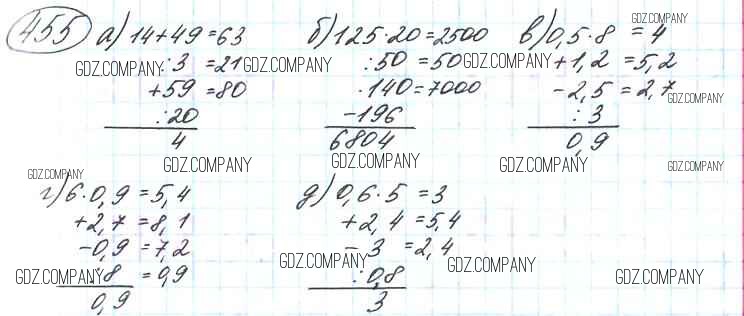 455 а) 14+49=63 б) 125·20=2500 в) 0,5·8 = 4
:3 =21 :50 =50 +1,2 =5,2
+59 =80 ·140=7000 -2,5 =2,7
:20 -196 :3
4 6804 0,9
г) 6·0,9 =5,4 д) 0,6·5 =3
+2,7 =8,1 +2,4 =5,4
-0,9 =7,2 -3 =2,4
:8 =0,9 :0,8
0,9 3
GDZ.COMPANY
GDZ.COMPANY GDZ.COMPANY GDZ.COMPANY
GDZ.COMPANY
GDZ.COMPANY GDZ.COMPANY GDZ.COMPANY GDZ.COMPANY
GDZ.COMPANY
GDZ.COMPANY GDZ.COMPANY GDZ.COMPANY GDZ.COMPANY